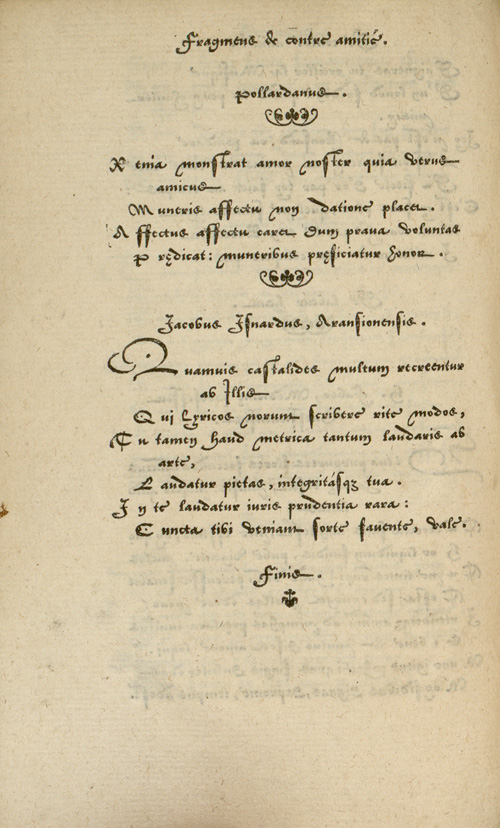 Fragmens de contre amitié.
Pollardanus.
Remia monstrat amor noster quia verus
amicus
Muneris affectu non datione placet.
Affectus affectu caret dum prava voluntas
Prędicat: muneribus pręficiatur honor.
Jacobus Isnardus, Aransionensis.
Quamuis castalides multum recreentur
ab Illis
Qui Lyricos norunt scribere rite modos,
Tu tamen haud metrica tantum laudaris ab
arte,
Laudatur pietas, integritásqꝫ tua.
In te laudatur iuris prudentia rara:
Cuncta tibi veniant sorte fauente, vale.
Finis.